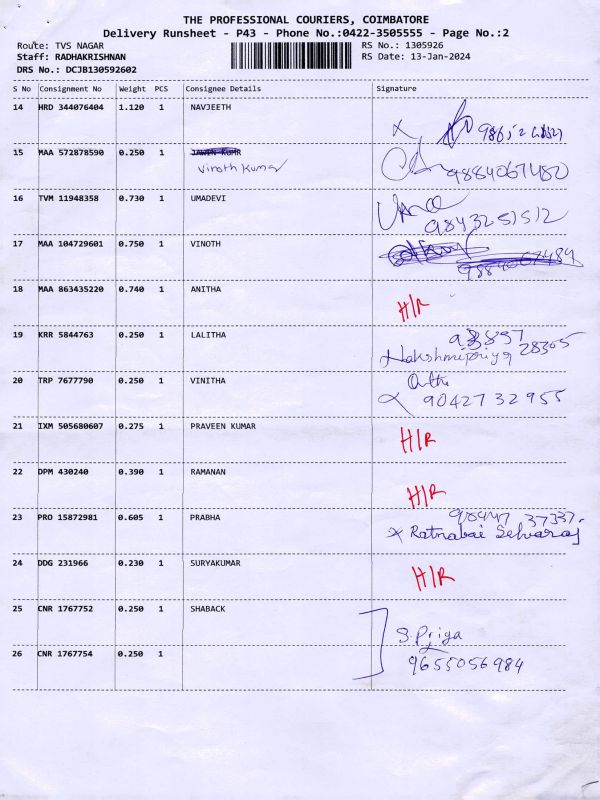 THE PROFESSIONAL COURIERS, COIMBATORE
Delivery Runsheet - P43 - Phone No.:0422-3505555 - Page No.:2
Route: TVS NAGAR RS No.: 1305926
Staff: RADHAKRISHNAN RS Date: 13-Jan-2024
DRS No.: DCJB130592602
S No Consignment No Weight PCS Consignee Details Signature
14 HRD 344076404 1.120 1 NAVJEETH
15 MAA 572878590 0.250 1 JAWIN KUMR
Vinoth Kumar 9884067480
16 TVM 11948358 0.730 1 UMADEVI Uma
9843251512
17 MAA 104729601 0.750 1 VINOTH
18 MAA 863435220 0.740 1 ANITHA H/R
19 KRR 5844763 0.250 1 LALITHA
Lakshmipriya 28305
20 TRP 7677790 0.250 1 VINITHA
9042732955
21 IXM 505680607 0.275 1 PRAVEEN KUMAR H/R
22 DPM 430240 0.390 1 RAMANAN H/R
23 PRO 15872981 0.605 1 PRABHA 37337.
x Ratnabai Selvaraj
24 DDG 231966 0.230 1 SURYAKUMAR H/R
25 CNR 1767752 0.250 1 SHABACK
S. Priya
26 CNR 1767754 0.250 1 9655056984